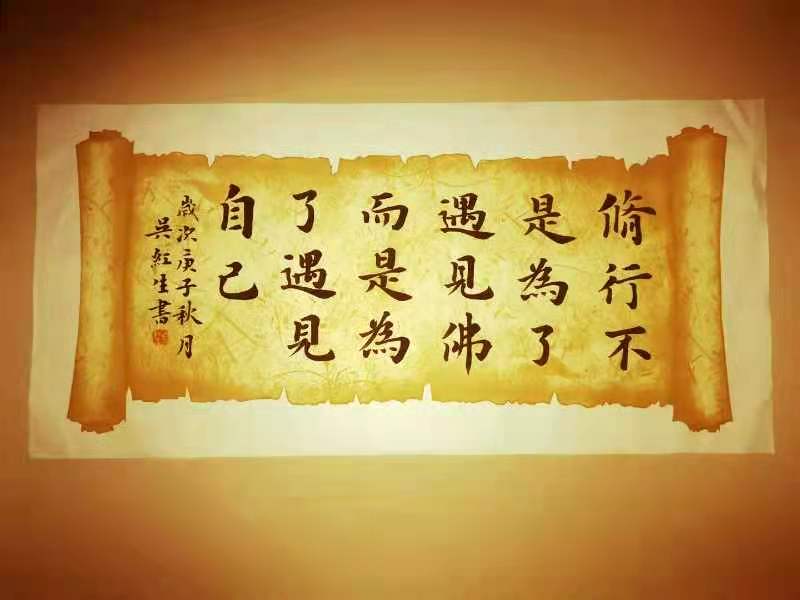 脩行不
是為了
遇見佛
而是為
了遇見
自己
歲次庚子秋月
吴紅生書